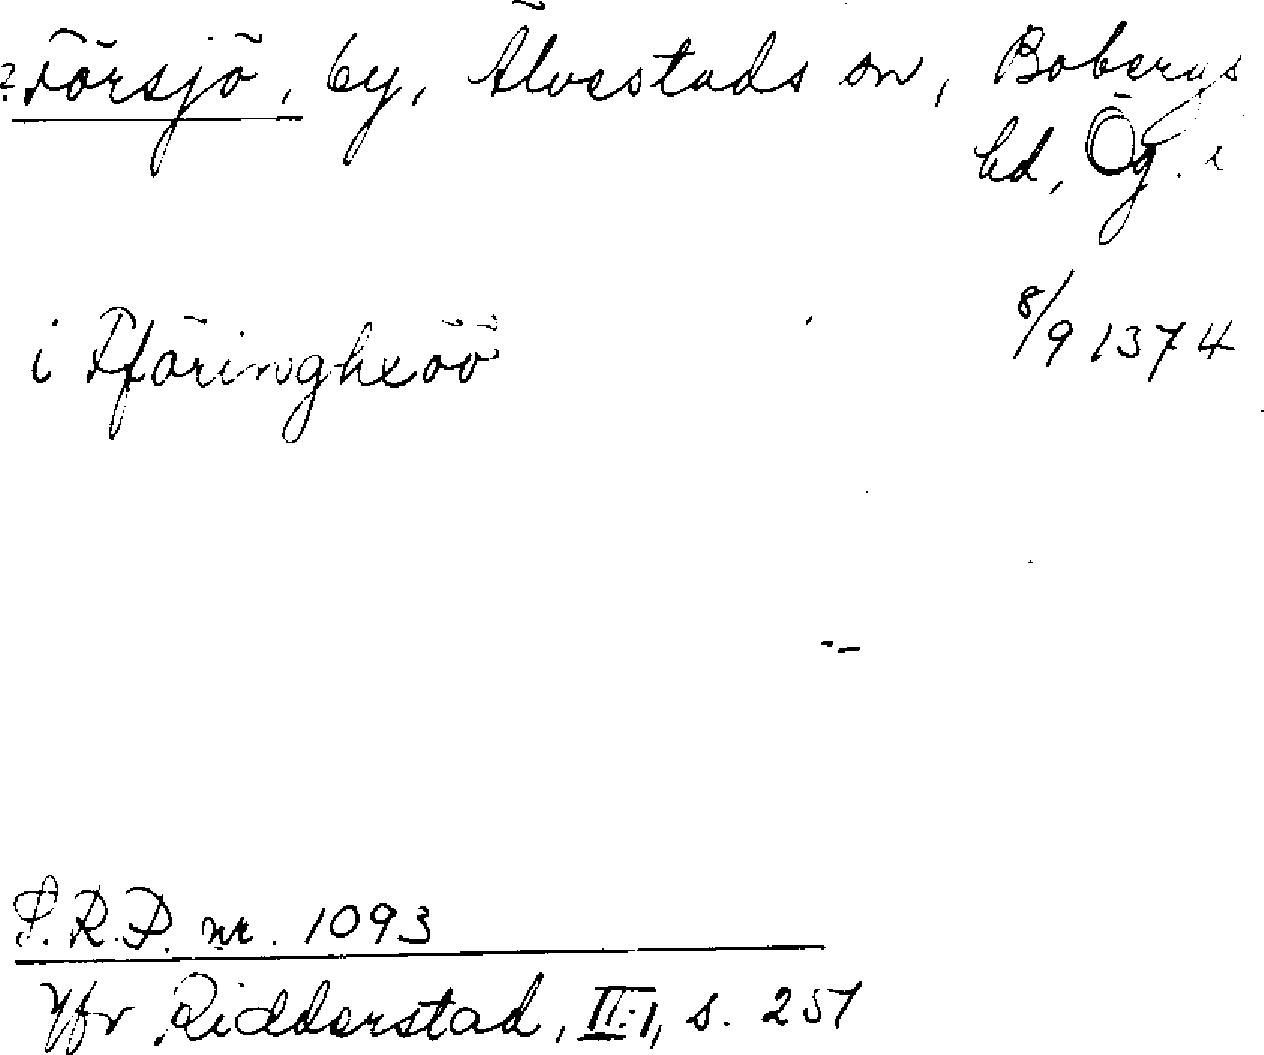 ? Försjö, by, Älvestads sn, Bobergs
hd, Ög.
i Fföringhesöö 8/9 1374
S.R.P. nr. 1093
Jfr Ridderstad, II:1, s. 251